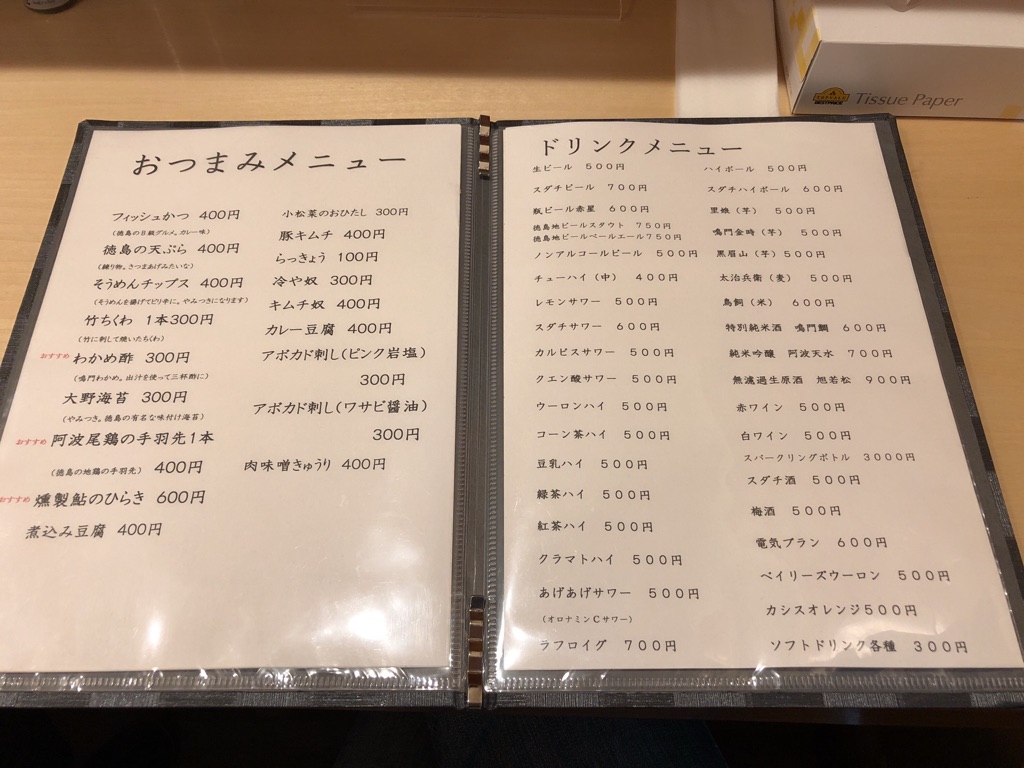 Tissue Paper
おつまみメニュー
フィッシュかつ 400円
(徳島のB級グルメ。カレー味)
徳島の天ぷら 400円
(練り物。さつまあげみたいな)
そうめんチップス 400円
(そうめんを揚げてピリ辛に。やみつきになります)
竹ちくわ 1本300円
(竹に刺して焼いたちくわ)
おすすめ わかめ酢 300円
(鳴門わかめ。出汁を使って三杯酢に)
大野海苔 300円
(やみつき。徳島の有名な味付け海苔)
おすすめ 阿波尾鶏の手羽先1本
(徳島の地鶏の手羽先) 400円
おすすめ 燻製鮎のひらき 600円
煮込み豆腐 400円
小松菜のおひたし 300円
豚キムチ 400円
らっきょう 100円
冷や奴 300円
キムチ奴 400円
カレー豆腐 400円
アボカド刺し(ピンク岩塩)
300円
アボカド刺し(ワサビ醤油)
300円
肉味噌きゅうり 400円
ドリンクメニュー
生ビール 500円
スダチビール 700円
瓶ビール赤星 600円
徳島地ビールスタウト 750円
徳島地ビールペールエール750円
ノンアルコールビール 500円
チューハイ(中) 400円
レモンサワー 500円
スダチサワー 600円
カルピスサワー 500円
クエン酸サワー 500円
ウーロンハイ 500円
コーン茶ハイ 500円
豆乳ハイ 500円
緑茶ハイ 500円
紅茶ハイ 500円
クラマトハイ 500円
あげあげサワー 500円
(オロナミンCサワー)
ラフロイグ 700円
ハイボール 500円
スダチハイボール 600円
里娘(芋) 500円
鳴門金時(芋) 500円
黒眉山(芋)500円
太治兵衛(麦) 500円
鳥飼(米) 600円
特別純米酒 鳴門鯛 600円
純米吟醸 阿波天水 700円
無濾過生原酒 旭若松 900円
赤ワイン 500円
白ワイン 500円
スパークリングボトル 3000円
スダチ酒 500円
梅酒 500円
電気ブラン 600円
ベイリーズウーロン 500円
カシスオレンジ500円
ソフトドリンク各種 300円